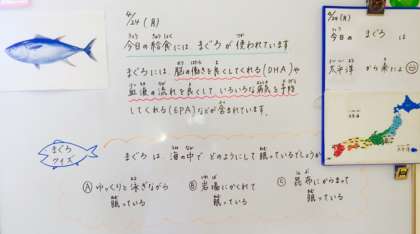 4/24 (月)
今日の給食には まぐろが 使われています
まぐろには 脳の働きを良くしてくれる(DHA)や
血液の流れを良くして いろいろな病気を予防
してくれる(EPA)などが 含まれています。
まぐろ
クイズ
まぐろ は、海の中で どのようにして 眠っているでしょうか
Ⓐ ゆっくりと 泳ぎながら
眠っている
Ⓑ 岩場にかくれて
眠っている
Ⓒ 昆布にからまって
眠っている
4/24(月)
今日の まぐろ は
太平洋 から 来たよ